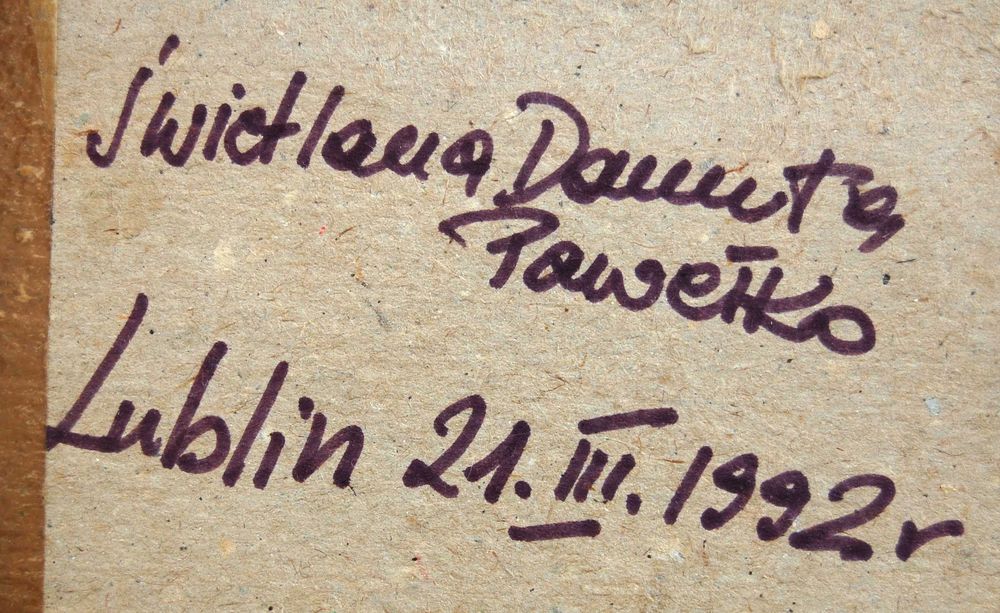 Świetlana Danuta
Pawełko
Lublin 21.III.1992r